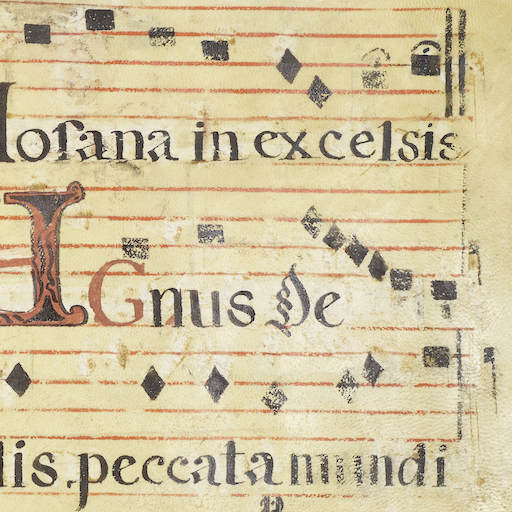 Hosana in excelsis
AGnus De
lis, peccata mundi